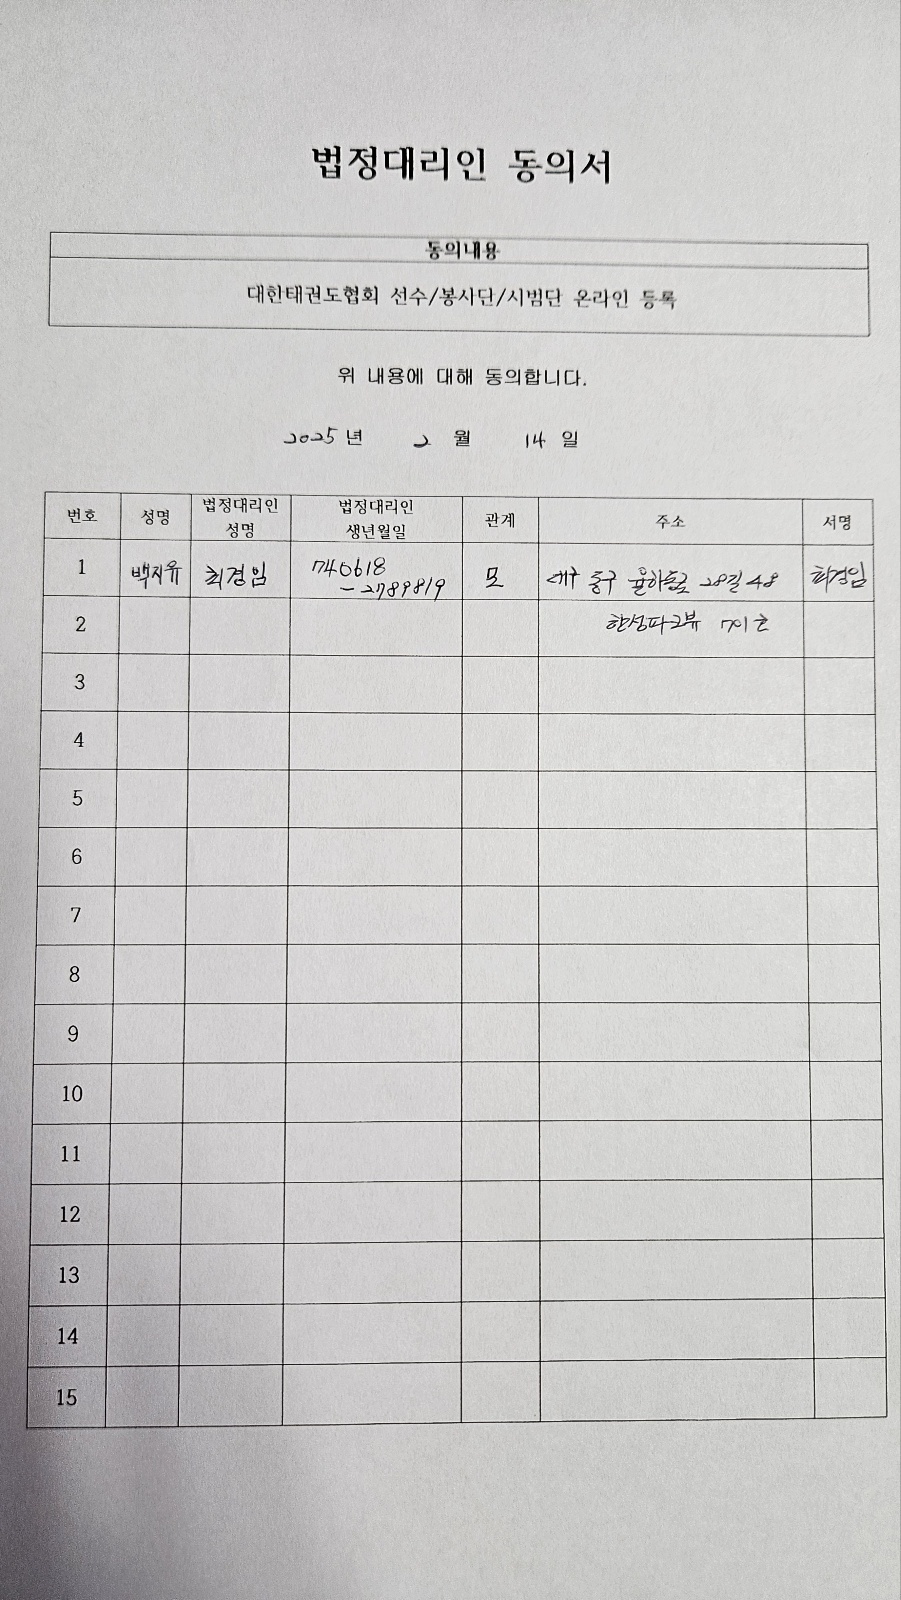 법정대리인 동의서
동의내용
대한태권도협회 선수/봉사단/시범단 온라인 등록
위 내용에 대해 동의합니다.
2025 년 2 월 14 일
번호 성명 법정대리인 성명 법정대리인 생년월일 관계 주소 서명
1 백지유 최경임 740618 모 대구 동구 율하동로 28길 48 최경임
-2789819
2 한성파크뷰 701호
3
4
5
6
7
8
9
10
11
12
13
14
15